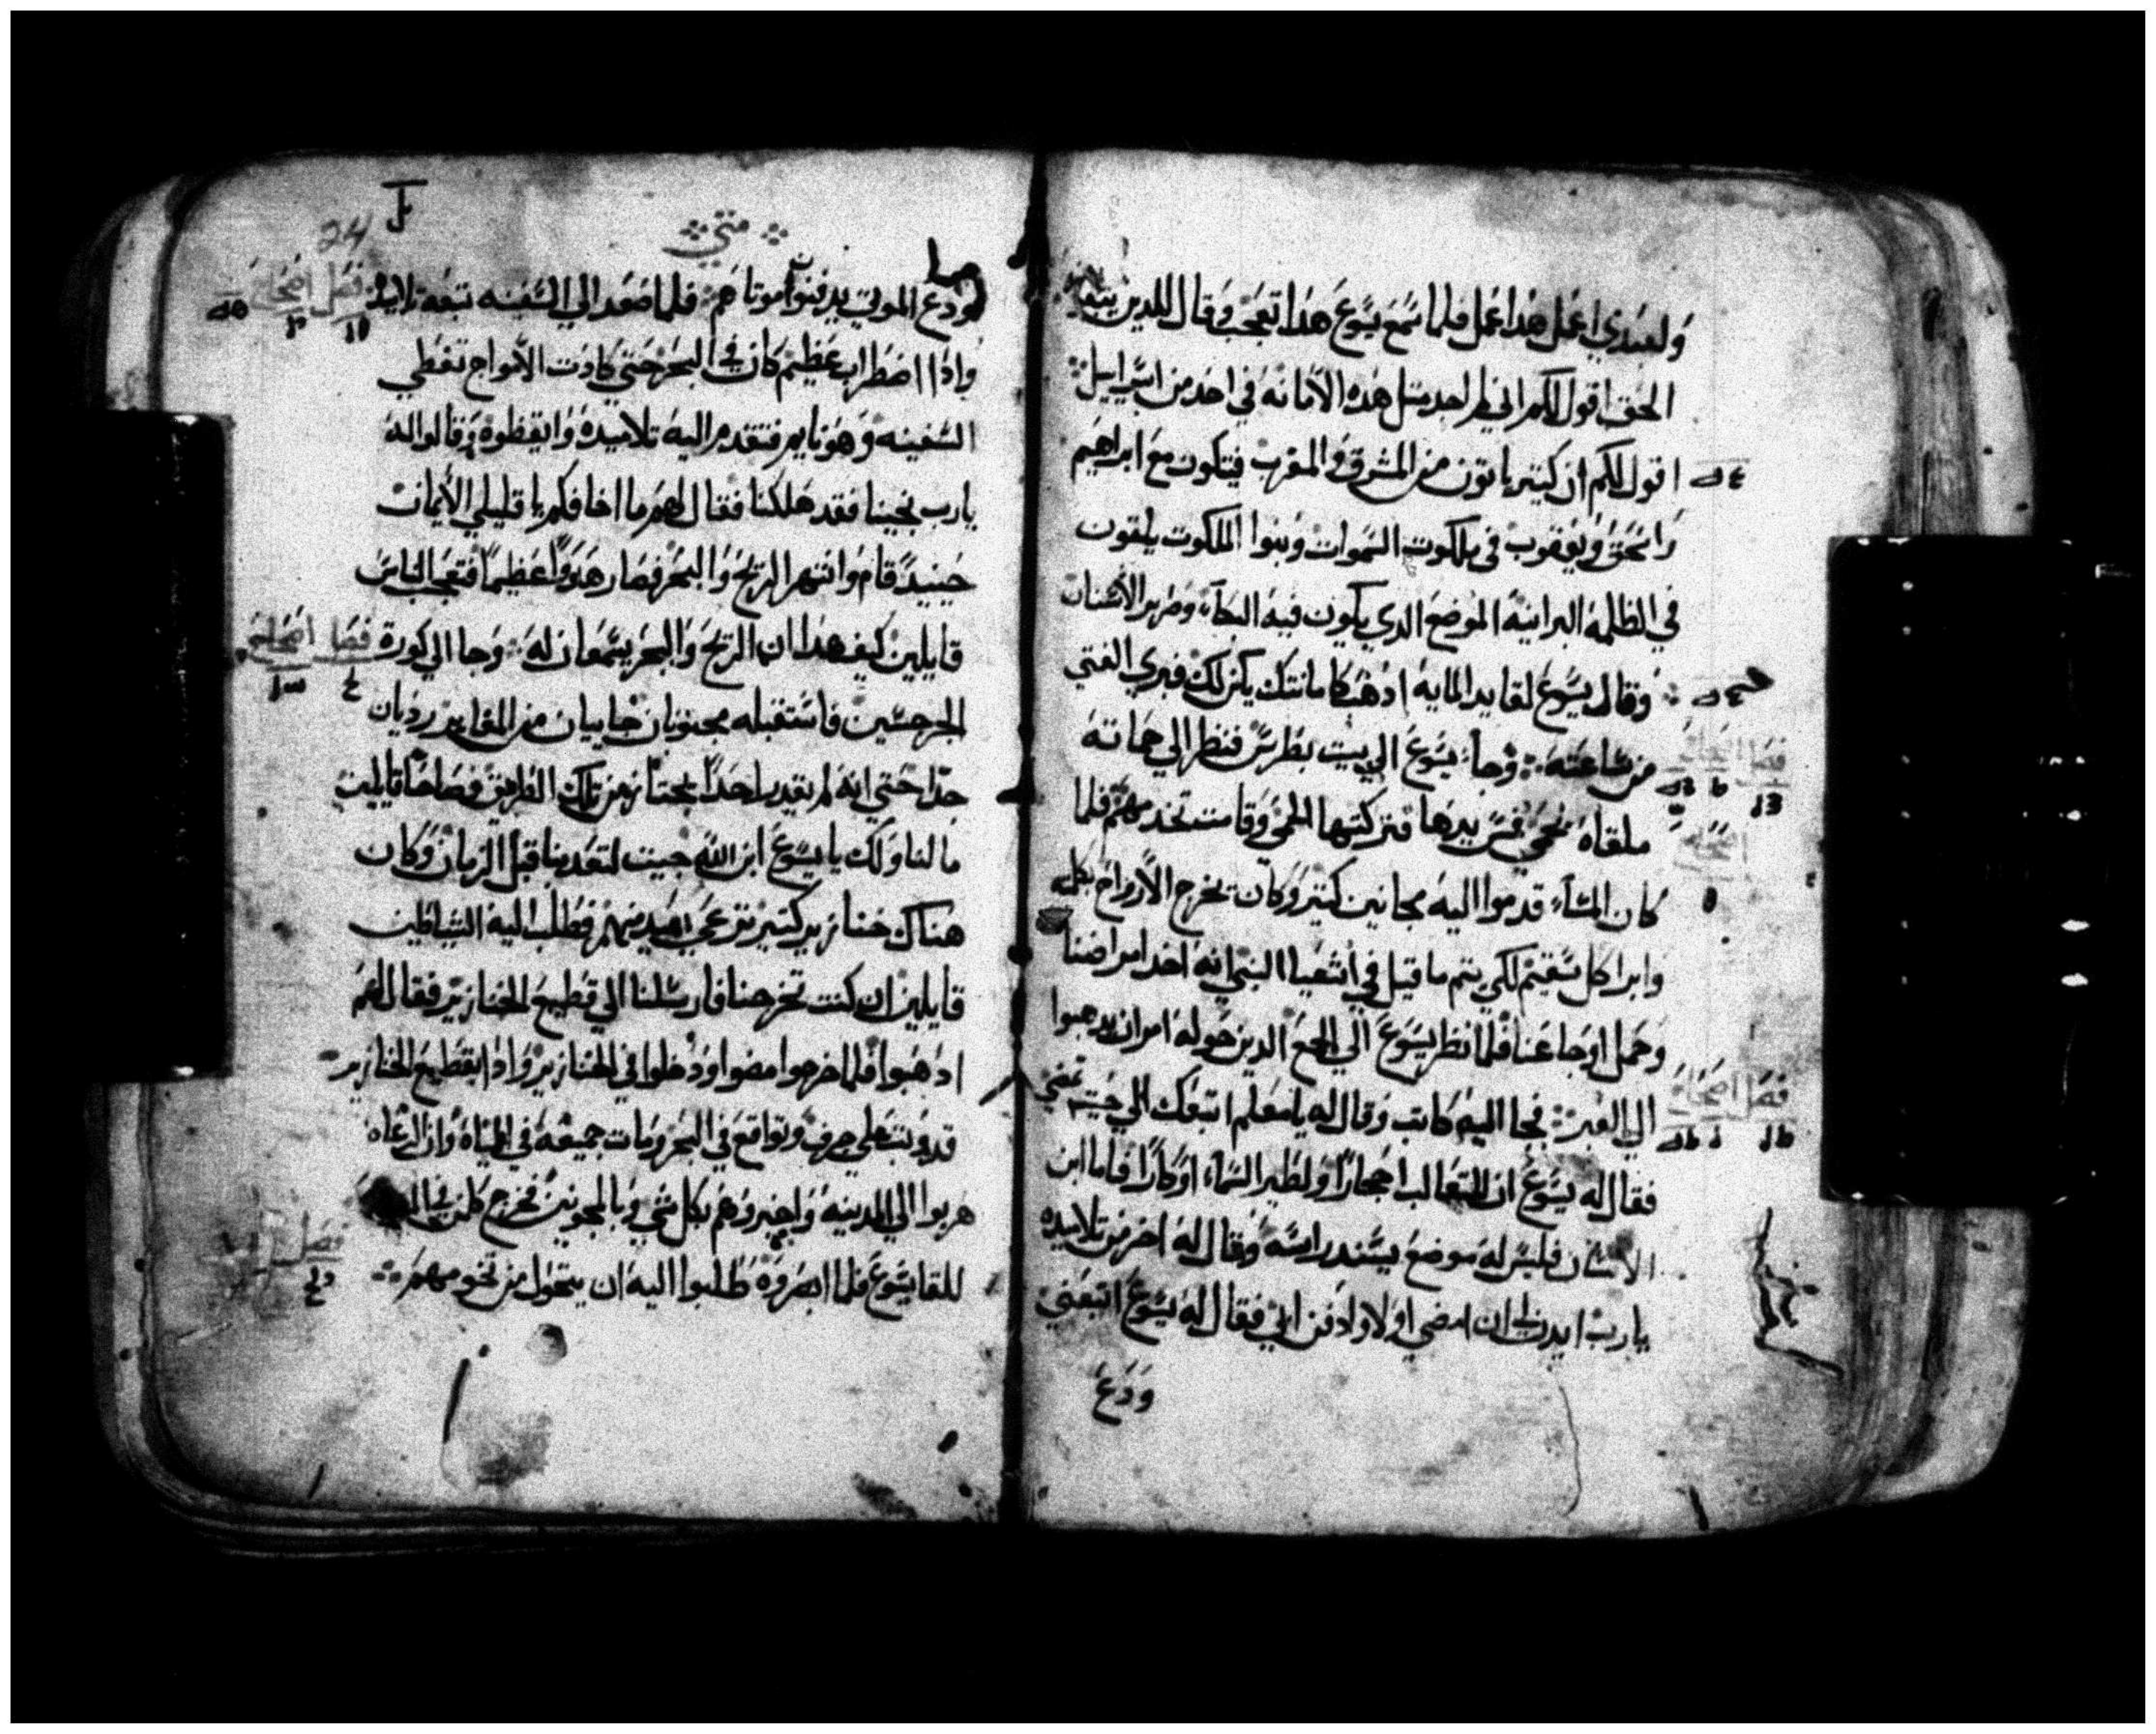 ولعبدي اعمل هدا عمل فلما سمع يسوع هدا تعجب وقال للدين يتبعونه
الحق اقول لكم اني لم اجد متل هده الأمانه في احد من اسراييل
اقول لكم ان كتير ياتون من المشرق والمغرب فيتكون مع ابراهيم
واسحق ويعقوب في ملكوت السموات وبنوا الملكوت يلقون
في الظلمه البرانيه الموضع الدي يكون فيه البكاء وصرير الأسنان
وقال يسوع لقايد المايه ادهب كامانتك يكن لك فبري الفتي
من ساعته وجا يسوع الي بيت بطرس فنظر الي حماته
ملقاه تحمي فمس يدها فتركتها الحمي وقامت تخدمهم فلما
كان المساء قدموا اليه مجانين كتير وكان يخرج الأرواح بكلمه
وابرا كل سقيم لكي يتم ما قيل في اشعيا النبي انه اخد امراضنا
وحمل اوجاعنا فلما نظر يسوع الي الجمع الدين حوله امر ان يدهبوا
الي العبر فجا اليه كاتب وقال له يا معلم اتبعك الي حيت تمضي
فقال له يسوع ان للتعالب اجحارًا ولطير السماء اوكارًا فاما ابن
الانسان فليس له موضع يسند راسه وقال له اخر من تلاميده
يارب ايدن لي ان امضي اولا وادفن ابي فقال له يسوع اتبعني
ودع
فصل
فصل
متي
24
ودع الموتي يدفنوا موتاهم فلما صعد الي السفينه تبعه تلاميده
وادا اضطراب عظيم كان في البحر حتي كادت الأمواج تغطي
السفينه وهو نايم فتقدم اليه تلاميده وايقظوه وقالوا له
يارب نجينا فقد هلكنا فقال لهم ما اخافكم يا قليلي الأيمان
حينيدً قام وانتهر الريح والبحر فصار هدوًا عظيمًا فتعجب الناس
قايلين كيف هدا ان الريح والبحر يسمعان له وجا الي كورة
الجرجسين فاستقبله مجنونان جاييان من المقابر رديان
جدًا حتي انه لم يقدر احدًا يجتاز من تلك الطريق فصاحا قايلين
مالنا ولك يا يسوع ابن الله جيت لتعدبنا قبل الزمان وكان
هناك خنازير كتير ترعي بعيد منهم فطلب اليه الشياطين
قايلين ان كنت تخرجنا فارسلنا الي قطيع الخنازير فقال لهم
ادهبوا فلما خرجوا مضوا ودخلوا في الخنازير وادا بقطيع الخنازير
قد وتب علي جرف وتواقع في البحر ومات جميعه في المياه وان الرعاه
هربوا الي المدينه واخبروهم بكل شي وبالمجونين فخرج كل من في
للقا يسوع فلما ابصروه طلبوا اليه ان يتحول من تخومهم
فصل
فصل
فصل